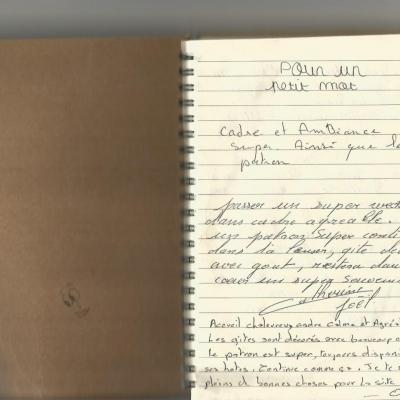 Pour un
petit mot
Cadre et Ambiance
super. Ainsi que le
patron
passer un super week
dans cadre agréable.
un patron super
dans la gite
avec gout, restera dans
coeur un super souvenir
Catherine
Joël
Acceuil chaleureux cadre calme et Agréa
Les gites sont décorés avec beaucoup
Le patron est super, toujours dispon
ses hotes. Continue comme ça. Je te
pleins de bonnes choses pour la suite